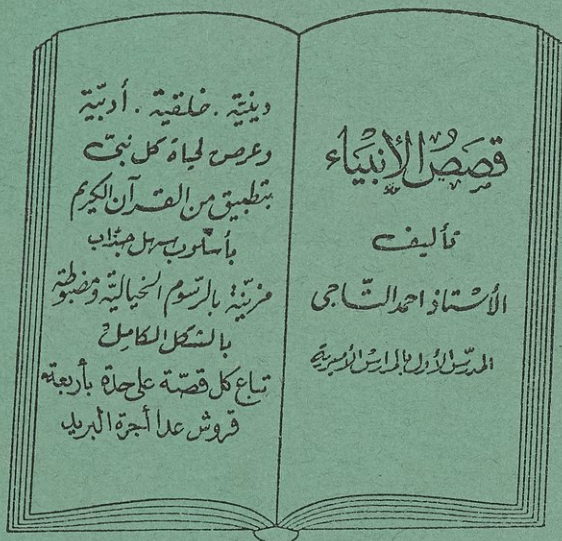 قصَصُ الأنبيَاء
تأليف
الأستاذ احمد التّاجى
المدرّس الأول بالمدارس الأميرية
دينيّة . خلقية . أدبيّة
وعرض لحياة كل نبىّ
بتطبيق من القرآن الكريم
بأسلوب سهل جذّاب
مزيّنة بالرّسوم الخياليّة ومضبوطة
بالشكل الكامِلْ
تباع كل قصّة على حدة بأربعة
قروش عدا أجرة البريد